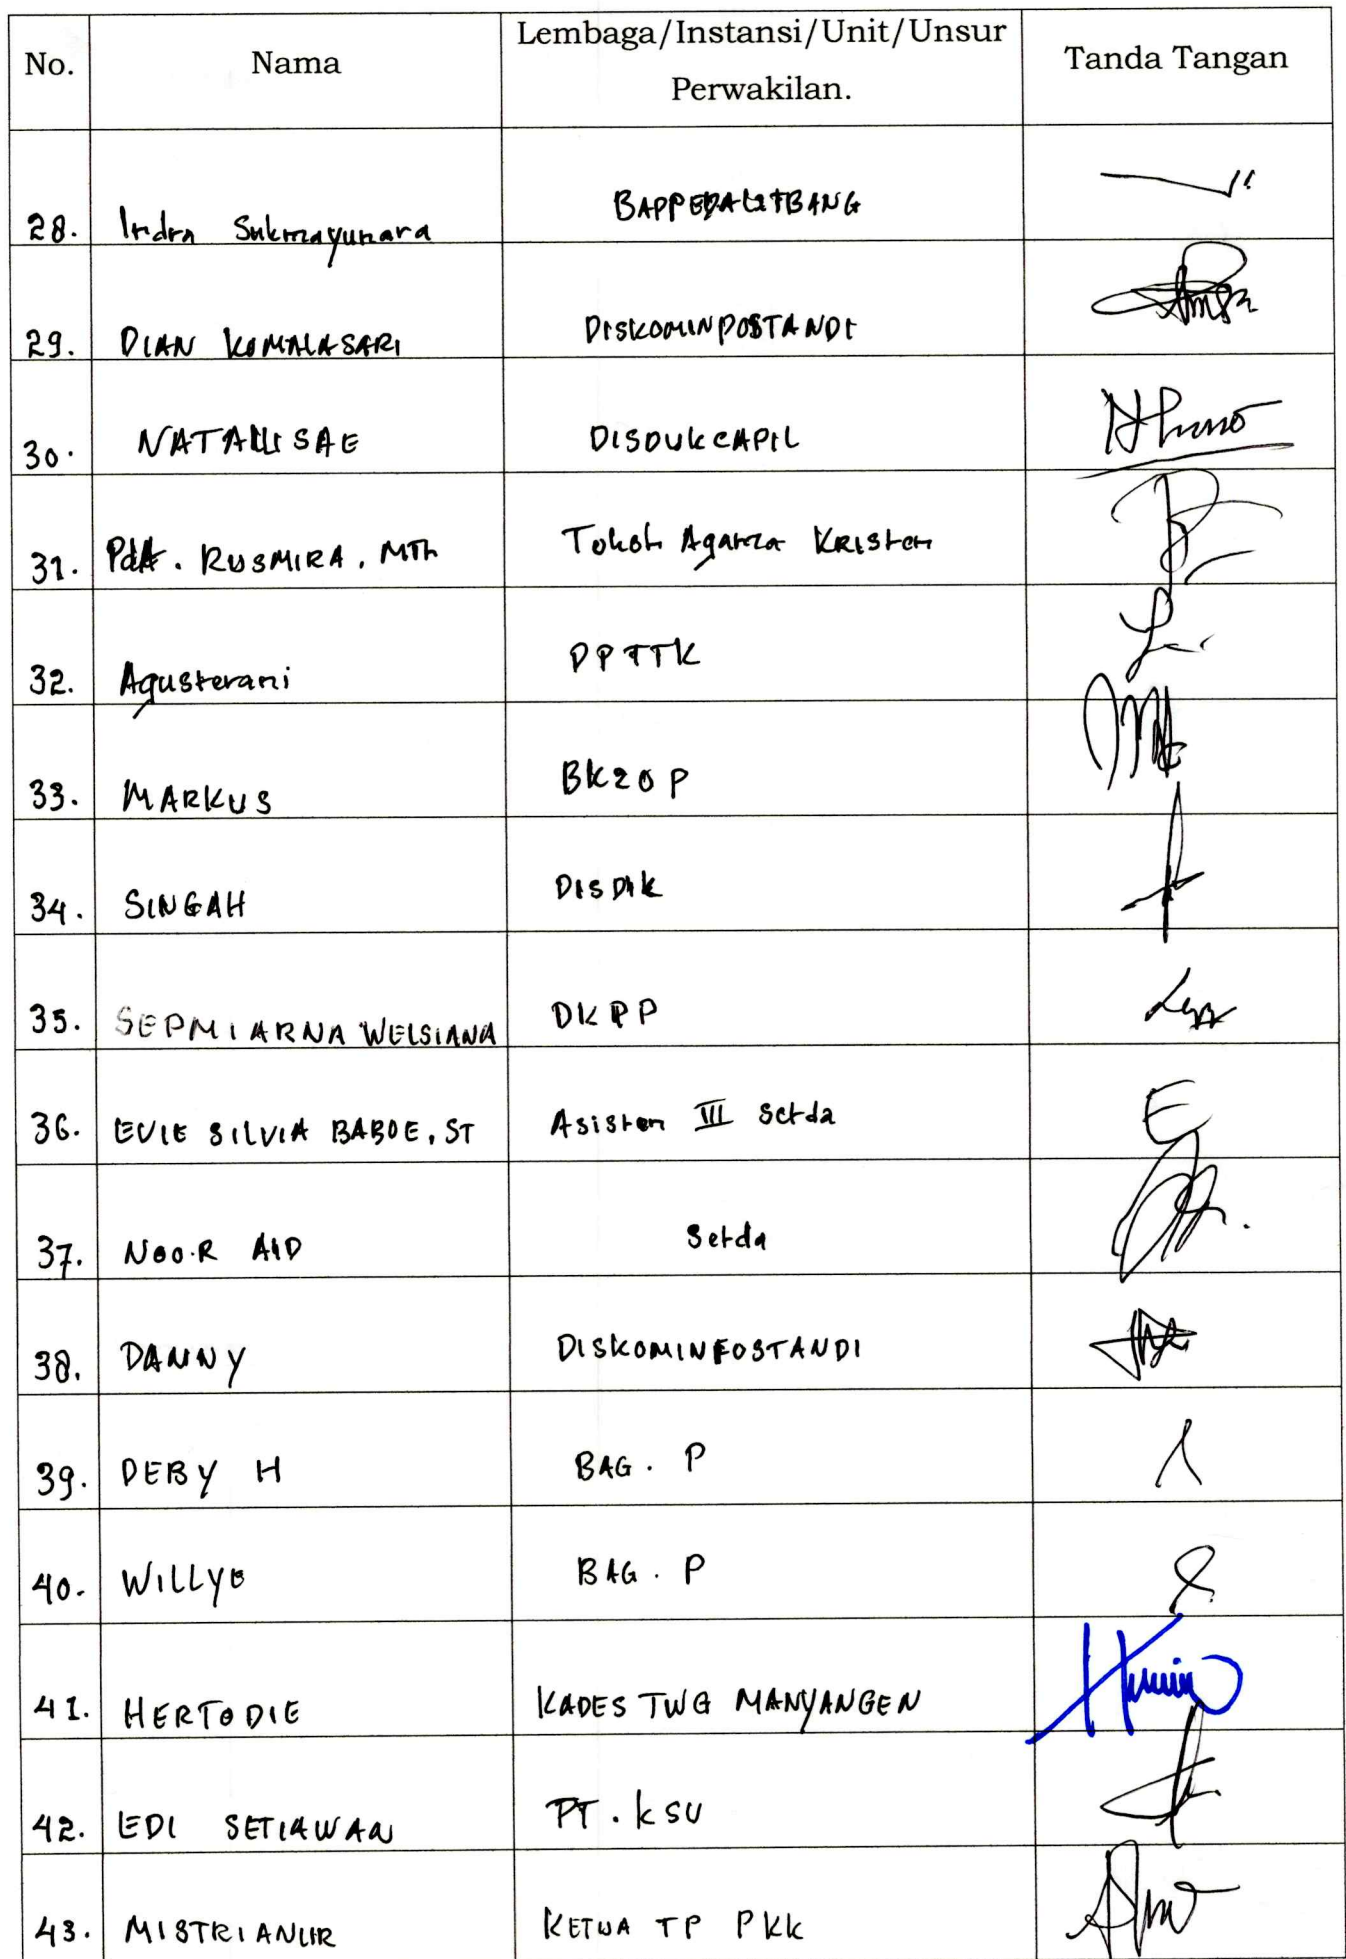 No. Nama Lembaga/Instansi/Unit/Unsur Perwakilan. Tanda Tangan
28. Indra Sukmayunara BAPPEDALITBANG
29. DIAN KOMALASARI DISKOMINFOSTANDI
30. NATALISAE DISDUKCAPIL
31. Pdt. RUSMIRA. MTh Tokoh Agama Kristen
32. Agusterani DPTTK
33. MARKUS BK20P
34. SINGAH DISDIK
35. SEPMIARNA WELSIANA DKPP
36. EVIE SILVIA BABOE, ST Asisten III Setda
37. NOOR AID Setda
38. DANNY DISKOMINFOSTANDI
39. DEBY H BAG. P
40. WILLYO BAG. P
41. HERTODIE KADES TWG MANYANGEN
42. EDI SETIAWAN PT. KSU
43. MISTRIANUR KETUA TP PKK